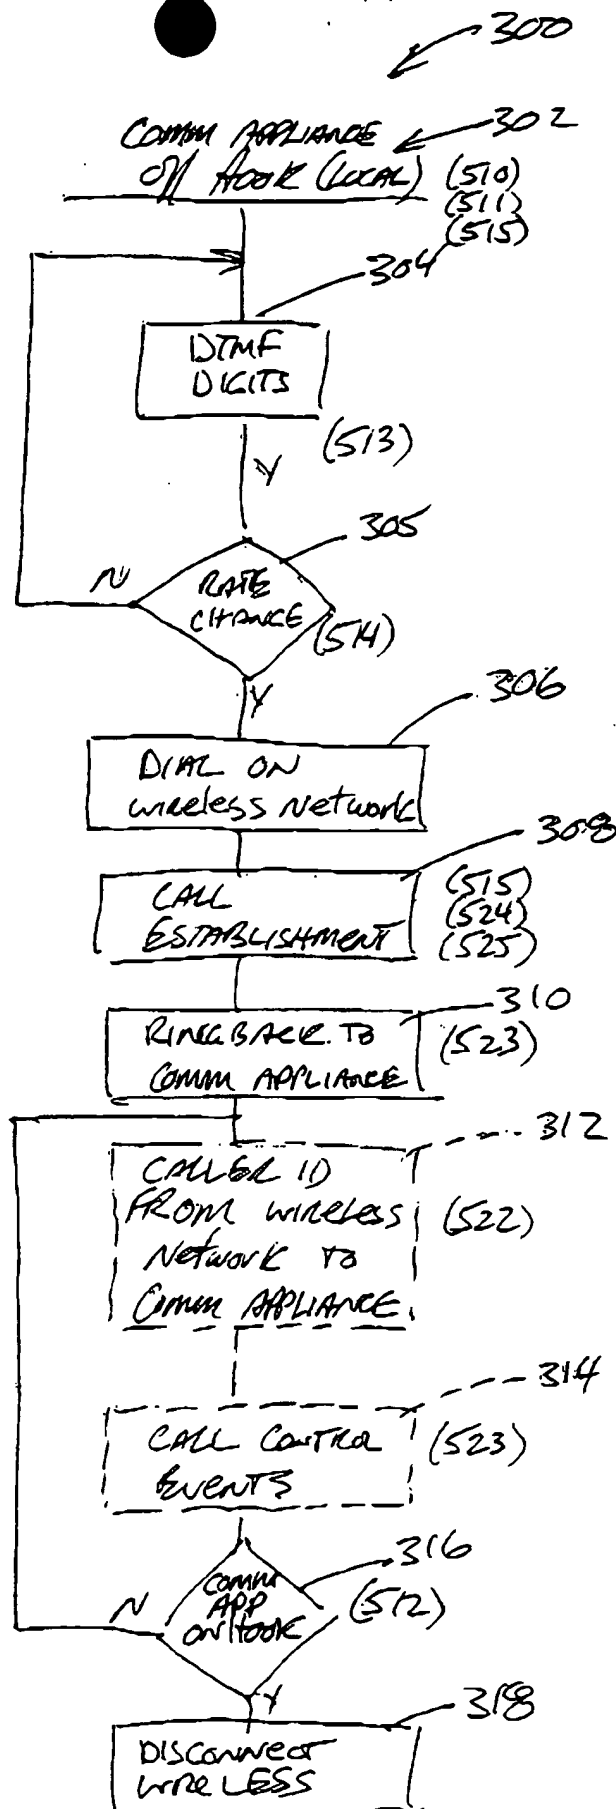 300
COMM APPLIANCE
302
OFF HOOK (LOCAL)
(510)
(511)
(515)
304
DTMF
DIGITS
(513)
Y
305
N
RATE
CHANGE
(514)
Y
306
DIAL ON
wireless Network
308
CALL
ESTABLISHMENT
(515)
(524)
(525)
310
RINGBACK TO
COMM APPLIANCE
(523)
312
CALLER ID
FROM wireless
Network TO
COMM APPLIANCE
(522)
314
CALL CONTROL
EVENTS
(523)
316
COMM
APP
ON HOOK
N
(512)
Y
318
DISCONNECT
WIRELESS